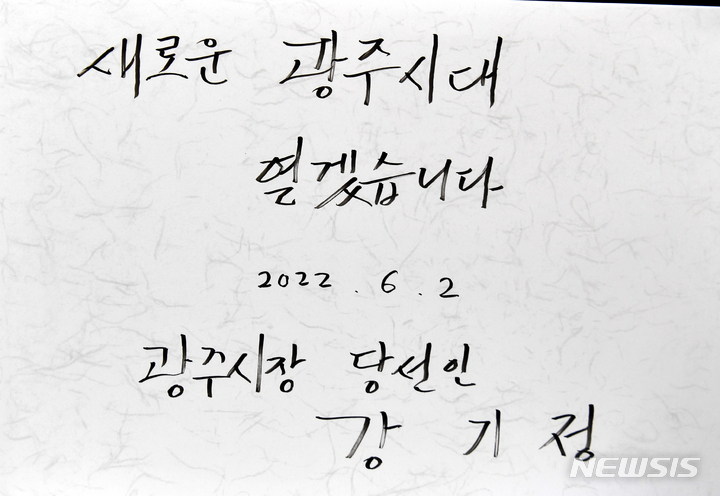 새로운 광주시대
열겠습니다
2022. 6. 2
광주시장 당선인
강 기 정
NEWSIS